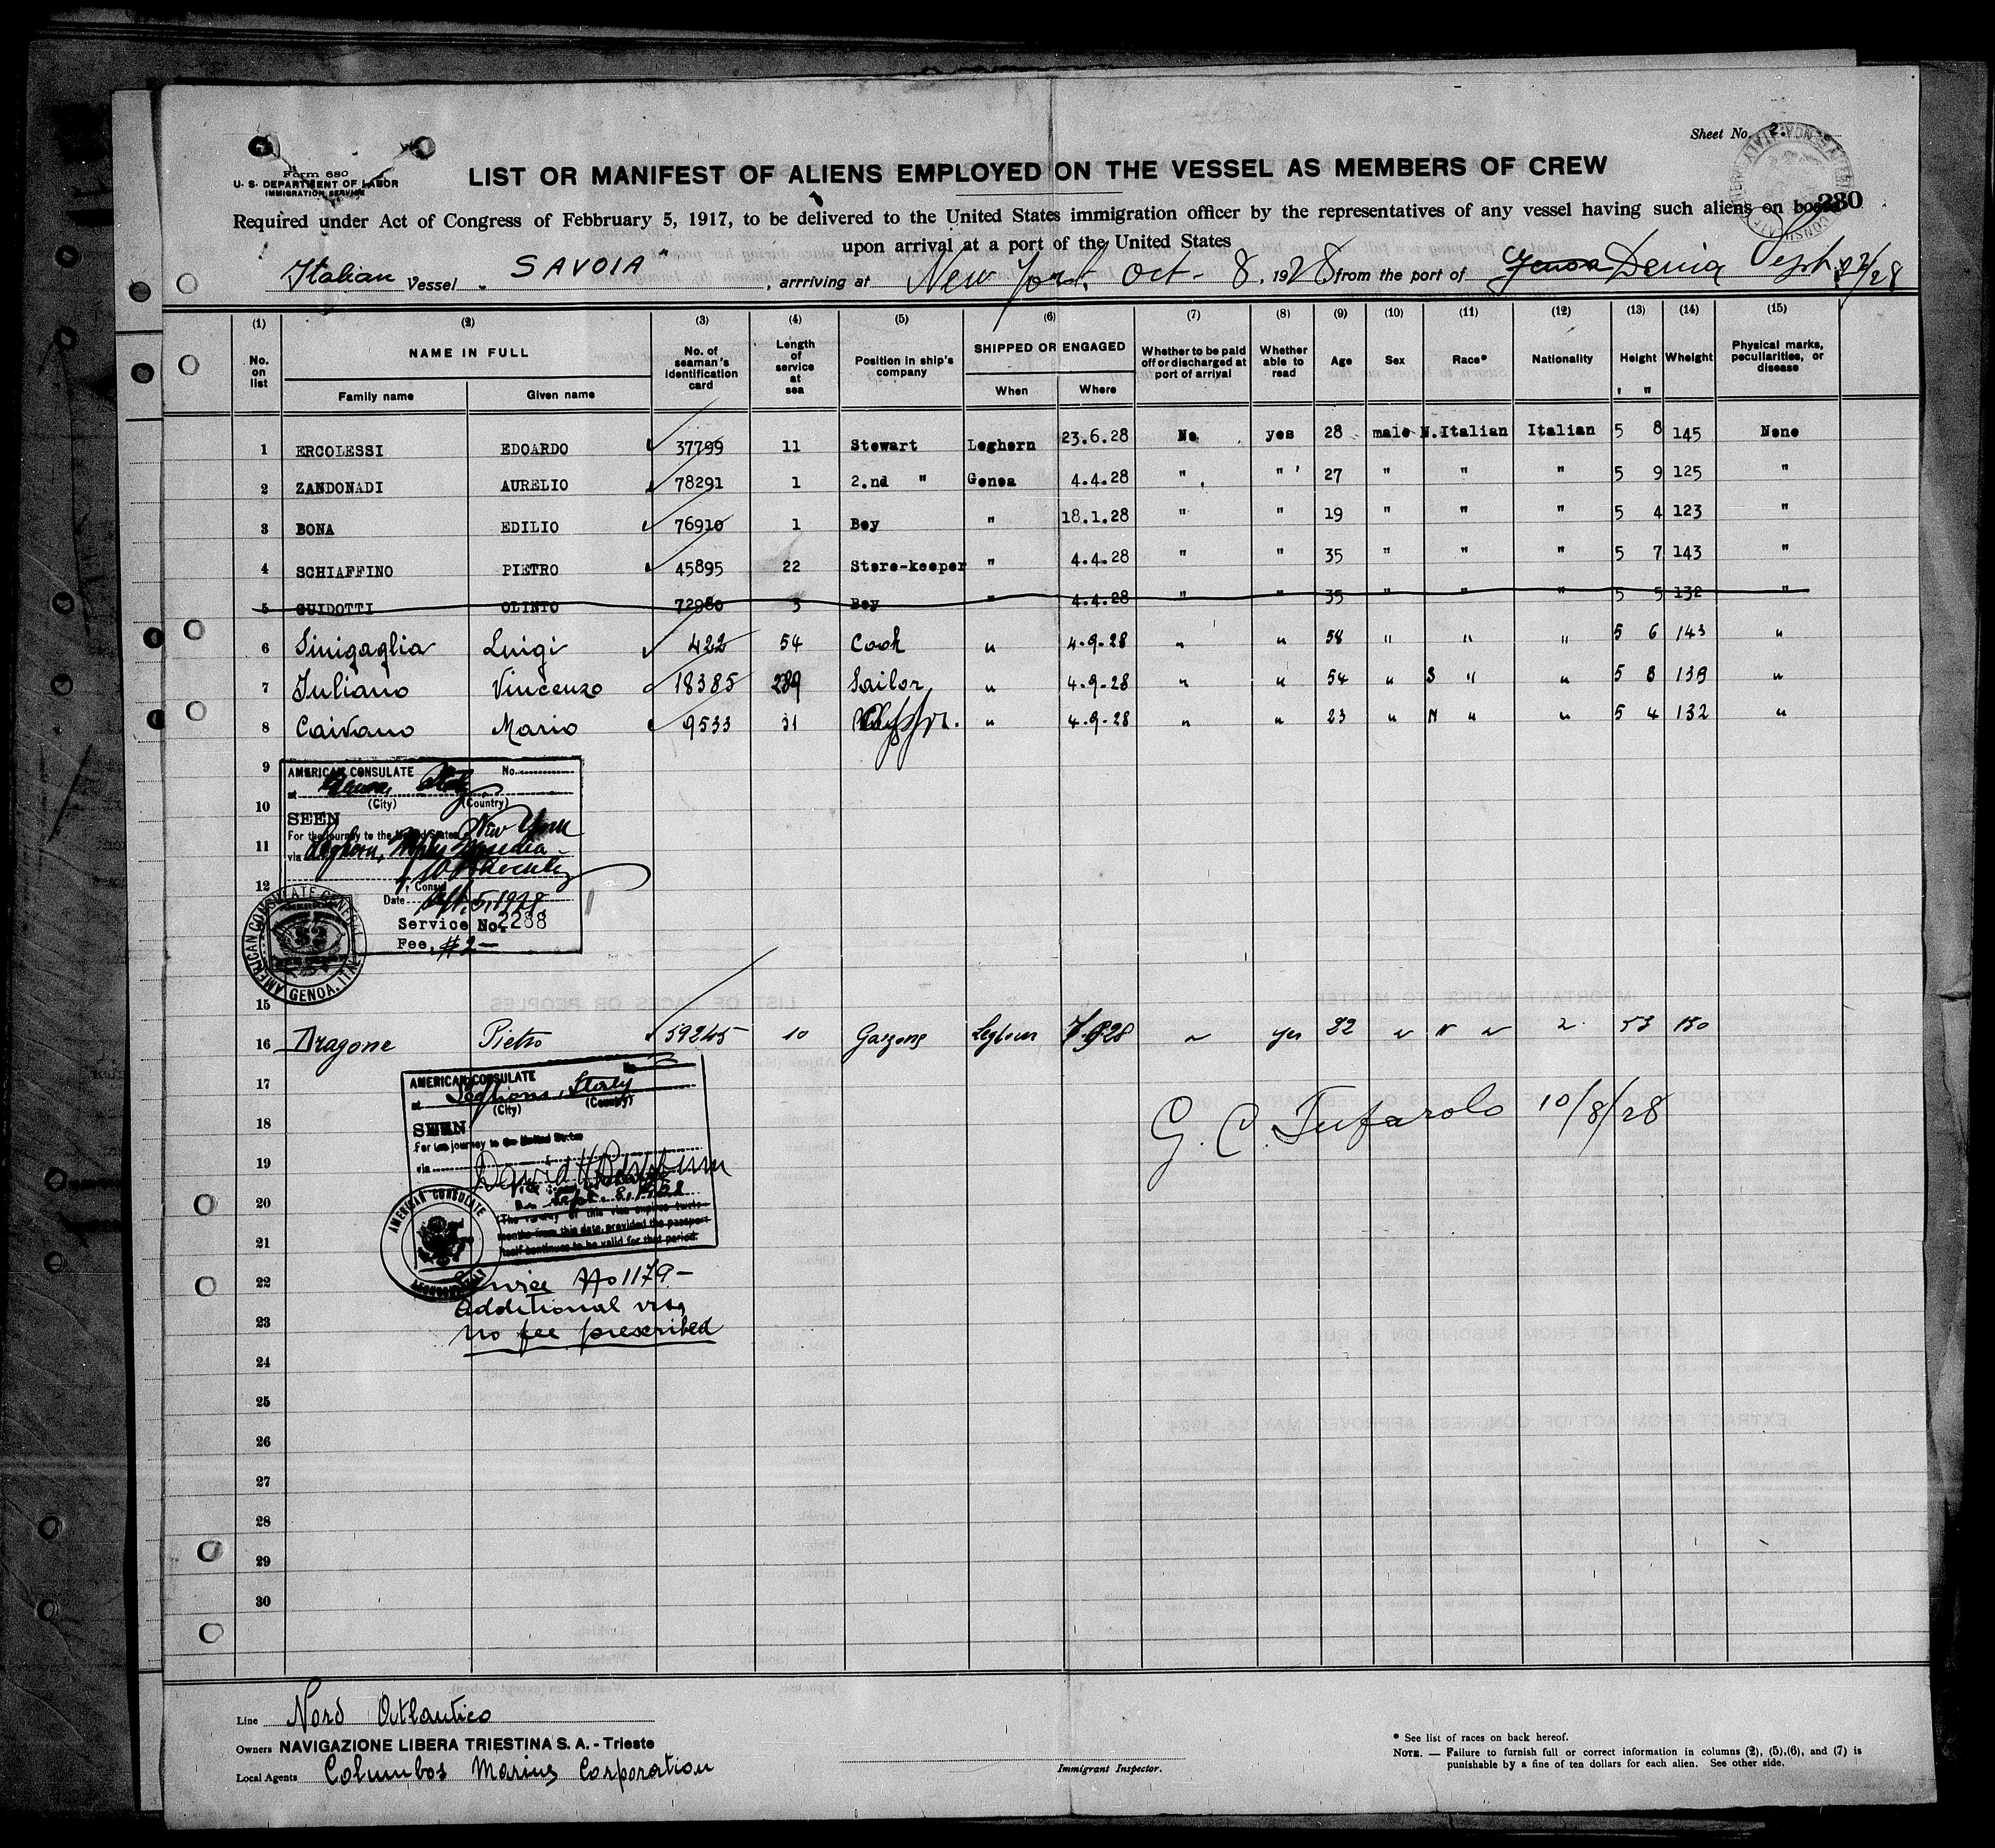 Sheet No. 2.
Form 680
U. S. DEPARTMENT OF LABOR
IMMIGRATION SERVICE
LIST OR MANIFEST OF ALIENS EMPLOYED ON THE VESSEL AS MEMBERS OF CREW
230
Required under Act of Congress of Febbruary 5, 1917, to be delivered to the United States immigration officer by the representatives of any vessel having such aliens on board
upon arrival at a port of the United States
Italian Vessel „ SAVOIA" , arrriving at New York, Oct - 8, 1928 from the port of Genoa Denia Sept. 22/28
(1) (2) (3) (4) (5) (6) (7) (8) (9) (10) (11) (12) (13) (14) (15)
No. on list NAME IN FULL Family name Given name No. of seaman's identification card Length of service at sea Position in ship's company SHIPPED OR ENGAGED When Where Whether to be paid off or discharged at port of arrival Whether able to read Age Sex Race* Nationality Height ' " Wheight Physical marks, peculiarities, or disease
1 ERCOLESSI EDOARDO 37799 11 Stewart Leghorn 23.6.28 No yes 28 male N.Italian Italian 5 8 145 None
2 ZANDONADI AURELIO 78291 1 2.nd " Genoa 4.4.28 " " 27 " " " 5 9 125 "
3 BONA EDILIO 76910 1 Boy " 18.1.28 " " 19 " " " 5 4 123 "
4 SCHIAFFINO PIETRO 45895 22 Store-keeper " 4.4.28 " " 35 " " " 5 7 143 "
5 GUIDOTTI OLINTO 72980 5 Boy " 4.4.28 " " 35 " " " 5 5 132 "
6 Sinigaglia Luigi 422 54 Cook " 4.9.28 " " 58 " " " 5 6 143 "
7 Juliano Vincenzo 18385 Sailor " 4.9.28 " " 54 " S " " 5 8 139 "
8 Caivano Mario 9533 31 " 4.9.28 " " 23 " N " " 5 4 132 "
9
10
11
12
AMERICAN CONSULATE No.
at Genoa, Italy
(City) (Country)
SEEN
For the journey to the United States New York
via Leghorn, Naples
, Consul
Date Sept. 5, 1928
Service No. 2288
Fee, #2—
AMERICAN CONSULATE GENERAL
GENOA, ITALY
$2
15
16 Dragone Pietro 59245 10 Garzone Leghorn 7.9.28 " yes 22 " N " " 53 150
AMERICAN CONSULATE No
at Leghorn, Italy
(City) (Country)
SEEN
For the journey to the United States
via
Sept. 8, 1928
The validity of this visa expires twelve
months from this date, provided the passport
itself continues to be valid for that period.
AMERICAN CONSULATE
Service No 1179 -
additional visa
no fee prescribed
G. C. Tufarolo 10/8/28
17
18
19
20
21
22
23
24
25
26
27
28
29
30
Line Nord Atlantico
Owners NAVIGAZIONE LIBERA TRIESTINA S. A. - Trieste
Local Agents Columbos Marius Corporation
Immigrant Inspector.
* See list of races on back hereof.
NOTE. — Failure to furnish full or correct information in columns (2), (5),(6), and (7) is
punishable by a fine of ten dollars for each alien. See other side.